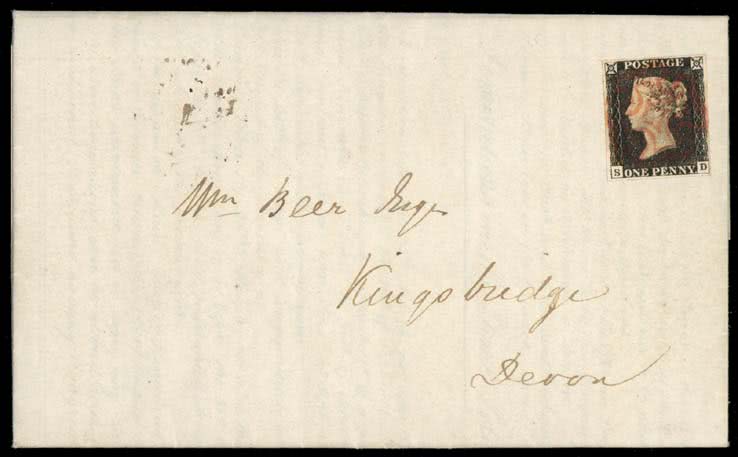 POSTAGE
S ONE PENNY D
Wm Beer Esqr
Kingsbridge
Devon